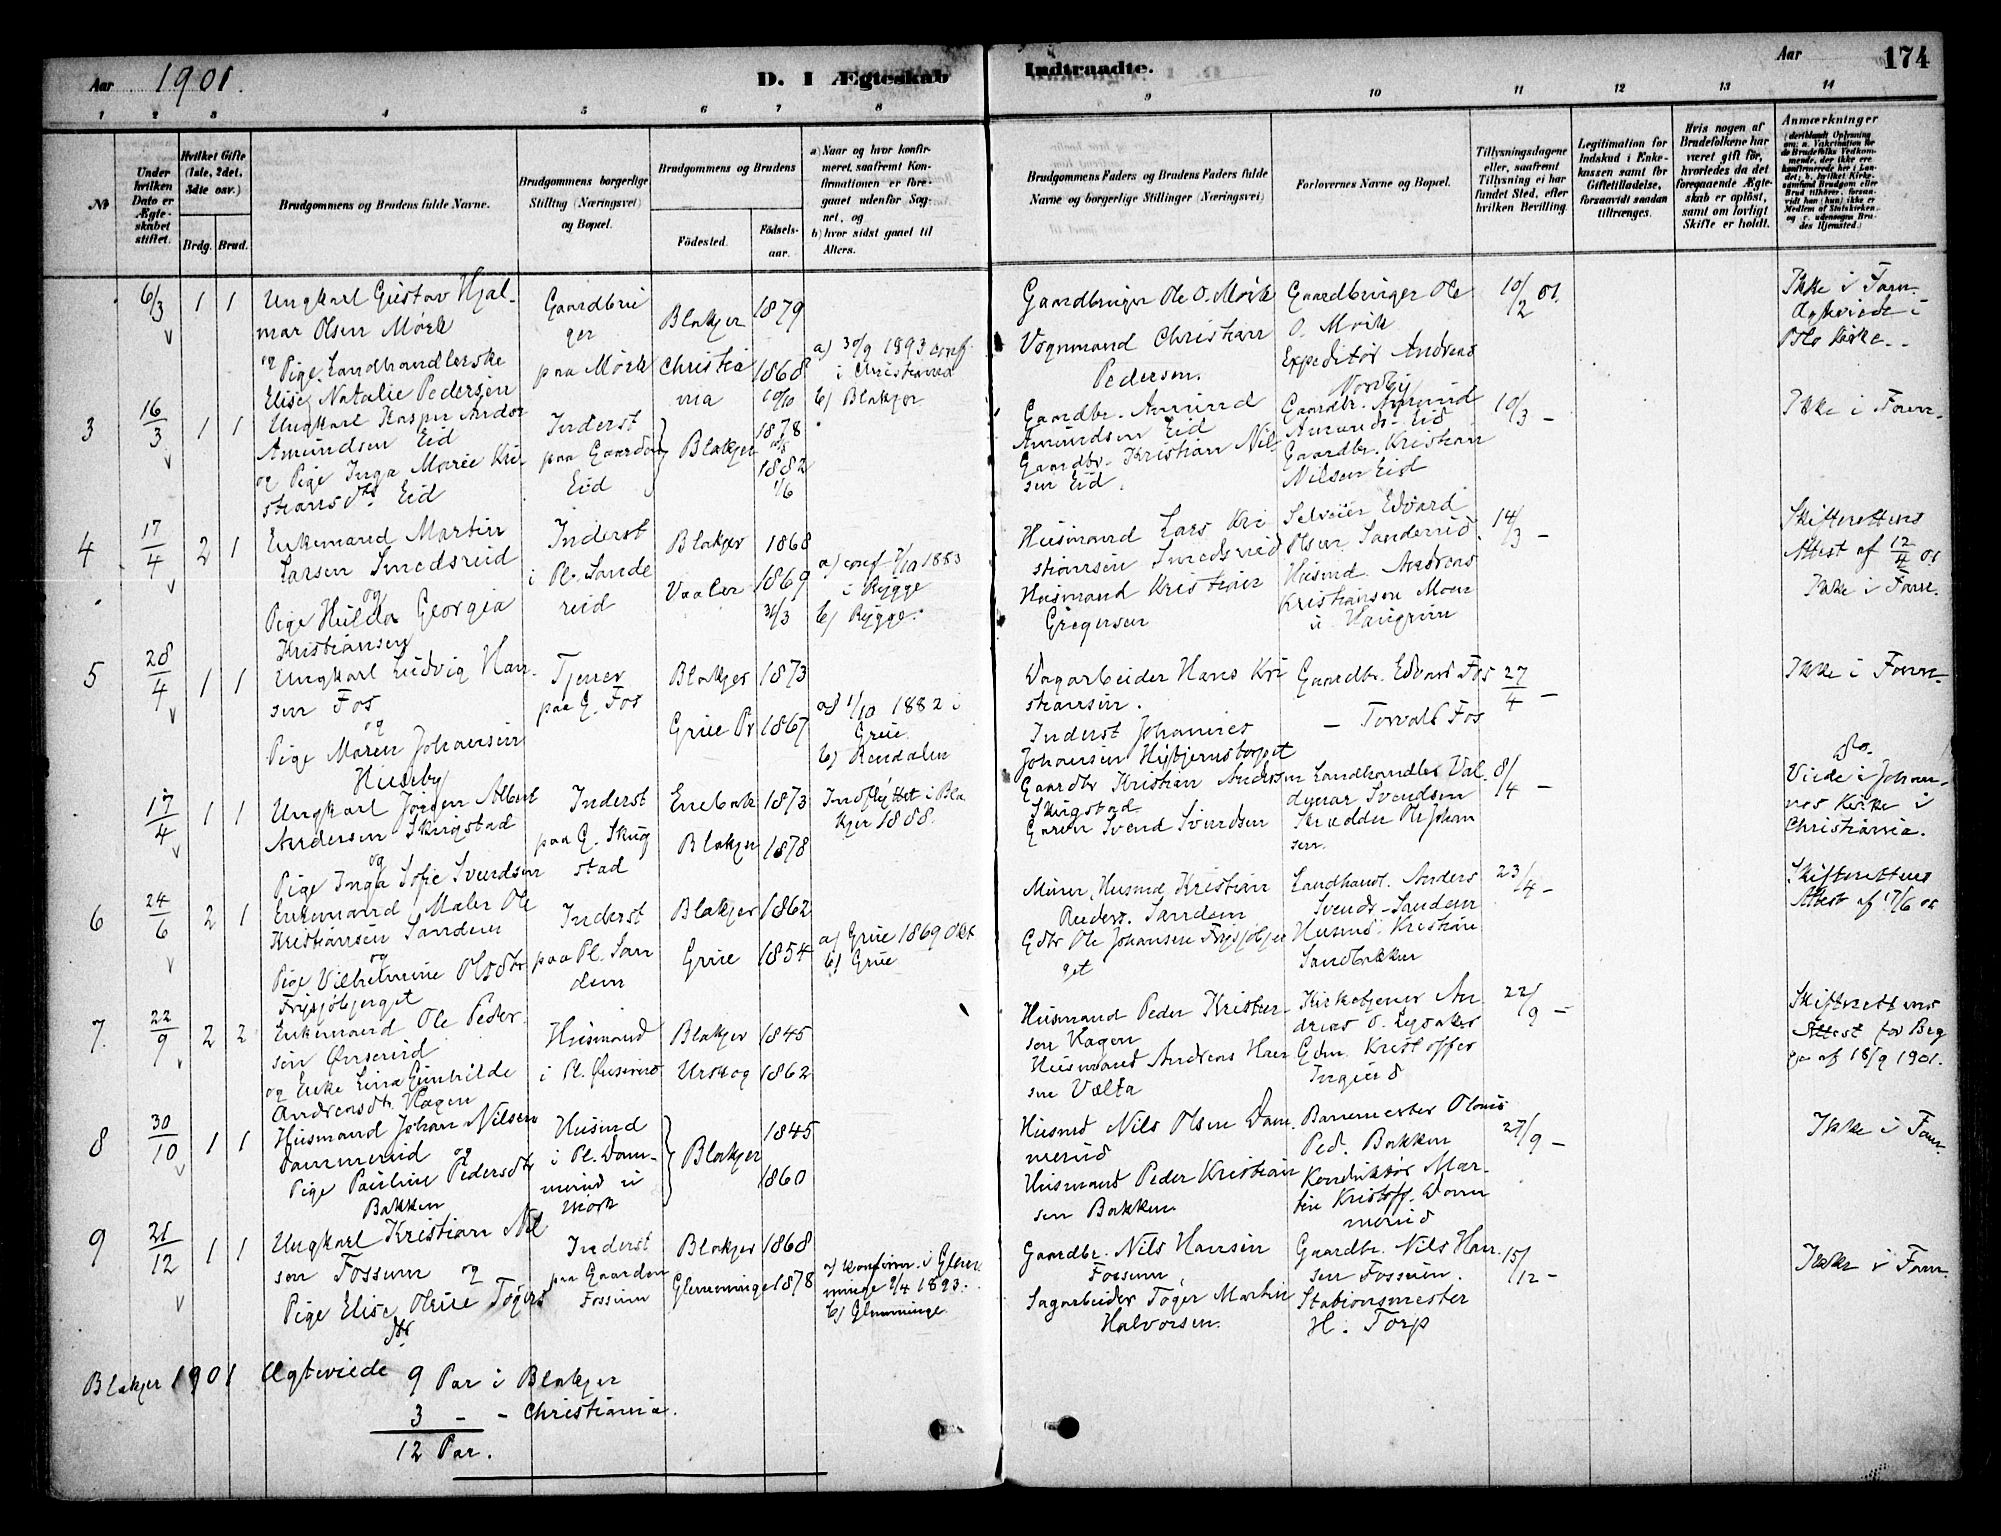 Aar 1901.
D. I Ægteskab
Indtraadte.
Aar
174
1 2 3 4 5 6 7 8 9 10 11 12 13 14
№
Under hvilken Dato er Ægteskabet stiftet.
Hvilket Gifte (1ste, 2det, 3die osv.)
Brdg. Brud.
Brudgommens og Brudens fulde Navne.
Brudgommens borgerlige Stilling (Næringsvei) og Bopæl.
Brudgommens og Brudens
Födested.
Födsels-aar.
a) Naar og hvor konfirmeret, saafremt Konfirmationen er foregaaet udenför Sognet, og
b) hvor sidst gaaet til Alters.
Brudgommens Faders og Brudens Faders fulde Navne og borgerlige Stillinger (Næringsvei)
Forlovernes Navne og Bopæl.
Tillysningsdagene eller, saafremt Tillysning ei har fundet Sted, efter hvilken Bevilling.
Legitimation for Indskud i Enkekassen samt för Giftetilladelse, forsaavidt saadan tiltrænges.
Hvis nogen af Brudefolkene har været gift för, hvorledes da det foregaaende Ægteskab er oplöst, samt om lovligt Skifte er holdt.
Anmærkninger
6/3 1 1
Ungkarl Gustav Hjal-
mar Olsen Mørk
og Pige Landhandlerske
Elise Natalie Pedersen
Gaardbru
ger
paa Mørk
Blakjer 1879
Christia
nia 1868
10/10
a) 30/9 1893 conf
i Christiania
b) Blakjer
Gaardbruger Ole O. Mørk
Vognmand Christian
Pedersen.
Gaardbruger Ole
O. Mørk
Expeditør Andreas
Nordby
10/2 01.
Ikke i Fam.
Ægteviede i
Oslo Kirke.
3 16/3 1 1
Ungkarl Kasper Andor
Amundsen Eid
og Pige Inga Marie Kri-
stiansdtr Eid
Inderst
paa Gaarden
Eid
Blakjer
1878
1882
1/6
Gaardbr. Amund
Amundsen Eid
Gaardbr. Kristian Nil-
sen Eid.
Gaardbr. Amund
Amunds. Eid
Gaardbr. Kristian
Nilsen Eid
10/3 -
Ikke i Fam.
4 17/4 2 1
Enkemand Martin
Larsen Smedsrud
og
Pige Hulda Georgia
Kristiansen
Inderst
i Pl. Sande
rud
Blakjer 1868
Vaaler 1869
31/3
a) conf 7/10 1883
i Rygge
b) Rygge.
Husmand Lars Kri
stiansen Smedsrud
Husmand Kristian
Gregersen
Selveier Edvard
Olsen Sanderud.
Husmd. Andreas
Kristiansen Moen
u. Haugrim
14/3 -
Skifterettens
Attest af 12/4 01
Ikke i Fam.
5 28/4 1 1
Ungkarl Ludvig Han-
sen Fos
og
Pige Maren Johansen
Huseby
Tjener
paa G. Fos
Blakjer 1873
Grue Pr 1867
a) 1/10 1882 i
Grue.
b) Rendalen
Dagarbeider Hans Kri
stiansen.
Inderst Johannes
Johansen
Gaardbr. Edvard Fos
- Torvald Fos
27/4 -
Ikke i Fam.
17/4 1 1
Ungkarl Jørgen Albert
Andersen Skugstad
og
Pige Inga Sofie Svendsen
Inderst
paa G. Skug
stad
Enebak 1873
Blakjer 1878
Indflyttet i Bla
kjer 1888.
Gaardbr Kristian Andersen
Skugstad
Garver Svend Svendsen
Landhandler Val-
demar Svendsen
Skrædder Ole Johan
sen.
8/4 -
do.
Viede i Johan-
nes Kirke i
Christiania.
6 24/6 2 1
Enkemand Maler Ole
Kristiansen Sandem
og
Pige Vilhelmine Olsdtr
Frysjøbjerget
Inderst
paa Pl. San
dem
Blakjer 1862
Grue 1854
a) Grue 1869 Okt
b) Grue
Murer, Husmd Kristian
Peders. Sandem
Gdbr Ole Johansen Frysjøbjer
get
Landhandl. Anders
Svends. Sandem
Husmd. Kristian
Sandbækken
23/4 -
Skifterettens
Attest af 17/6 01
7. 22/9 2 2
Enkemand Ole Peder-
sen Ønserud
og Enke Lina Gunhilde
Andreasdtr. Hagen
Husmand
i Pl. Ønserud
Blakjer 1845
Urskog 1862
Husmand Peder Kristen
sen Hagen
Husmand Andreas Han
sen Vælta
Kirketjener An
dreas O. Lysaker
Gdm. Kristoffer
Ingier
22/9 -
Skifterettens
Attest for Beg
ge af 18/9 1901.
8 30/10 1 1
Husmand Johan Nilsen
Dammerud og
Pige Pauline Pedersdtr
Bakken
Husmd
i Pl. Dam-
merud u
Mørk
Blakjer
1845
1860
Husmd Nils Olsen Dam
merud
Husmand Peder Kristian
sen Bakken
Banemester Olaus
Ped. Bakken
Konduktør Mar-
tin Kristoff. Dam
merud
27/9 -
Ikke i Fam.
9 21/12 1 1
Ungkarl Kristian Nil
sen Fossum og
Pige Elise Oluse Tøgers
dtr.
Inderst
paa Gaarden
Fossum
Blakjer 1868
Glemminge 1878
a) konfirm. i Glem
minge 9/4 1893.
b) Glemminge
Gaardbr. Nils Hansen
Fossum,
Sagarbeider Tøger Martin
Halvorsen.
Gaardbr. Nils Han-
sen Fossum.
Stationsmester
H. Torp
15/12 -
Ikke i Fam.
Blakjer 1901 Ægteviede 9 Par i Blakjer
3 - - Christiania.
12 Par.